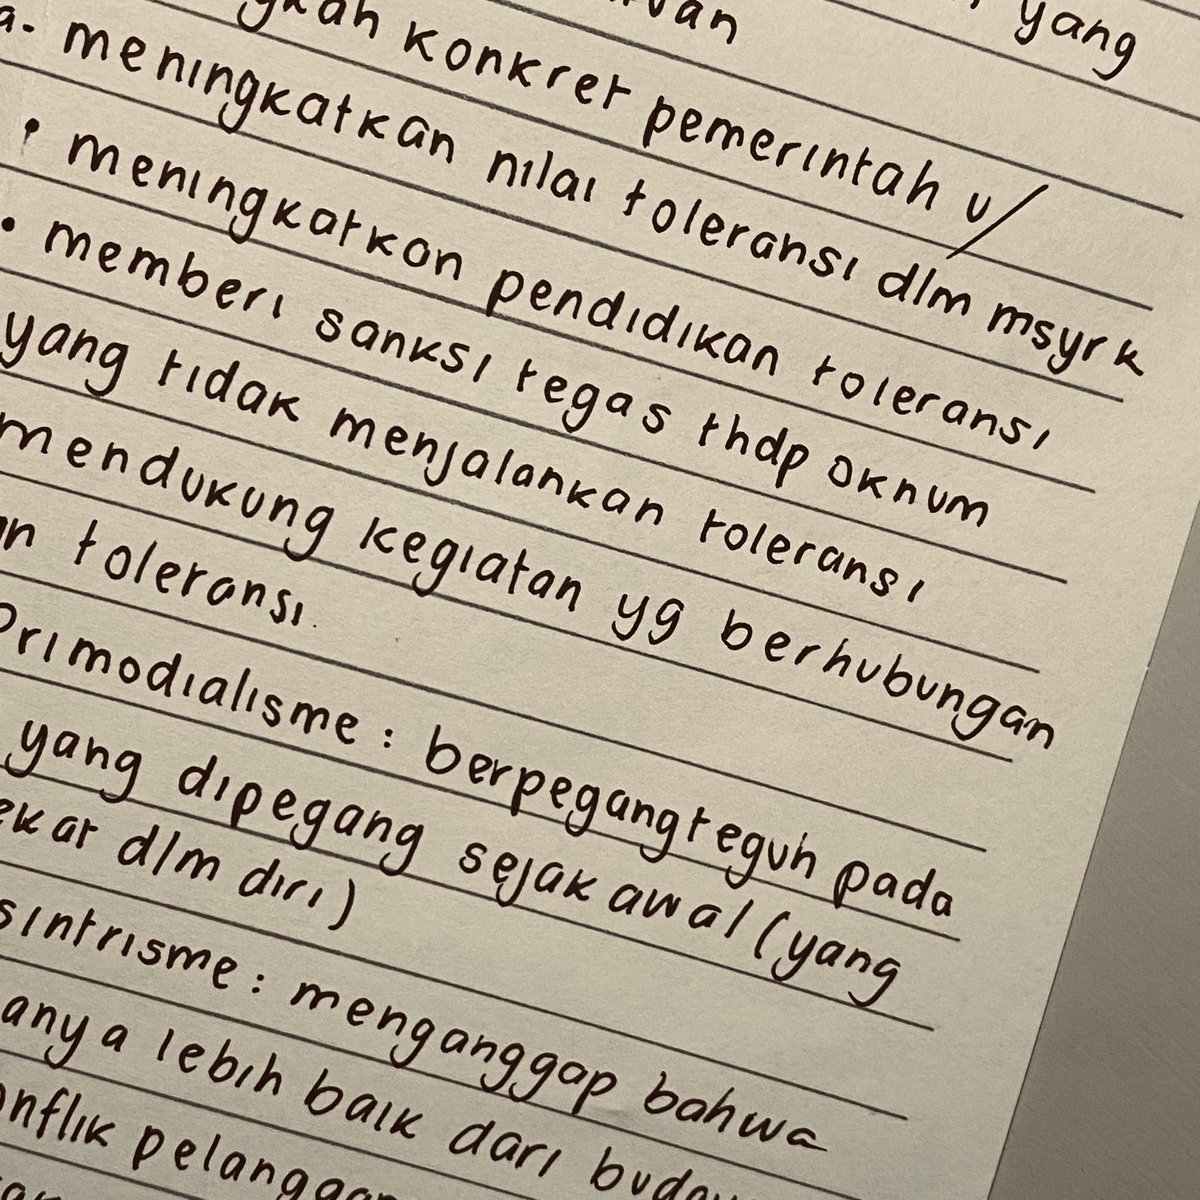 yang
konkret pemerintah u/
a. meningkatkan nilai toleransi dlm msyrk
• meningkatkan pendidikan toleransi
• memberi sanksi tegas thdp oknum
yang tidak menjalankan toleransi
mendukung kegiatan yg berhubungan
toleransi.
Primodialisme : berpegangteguh pada
yang dipegang sejak awal (yang
dlm diri)
sintrisme : menganggap bahwa
anya lebih baik dari
onflik